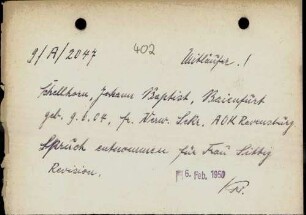 9/A/2047 402 Mitläufer.!
Schellhorn, Johann Baptist, Baienfurt
geb. 9.6.04, fr. Verw. Sekr. AOK Ravensburg
Spruch entnommen für Frau Sittig
Revision. 6. Feb. 1950